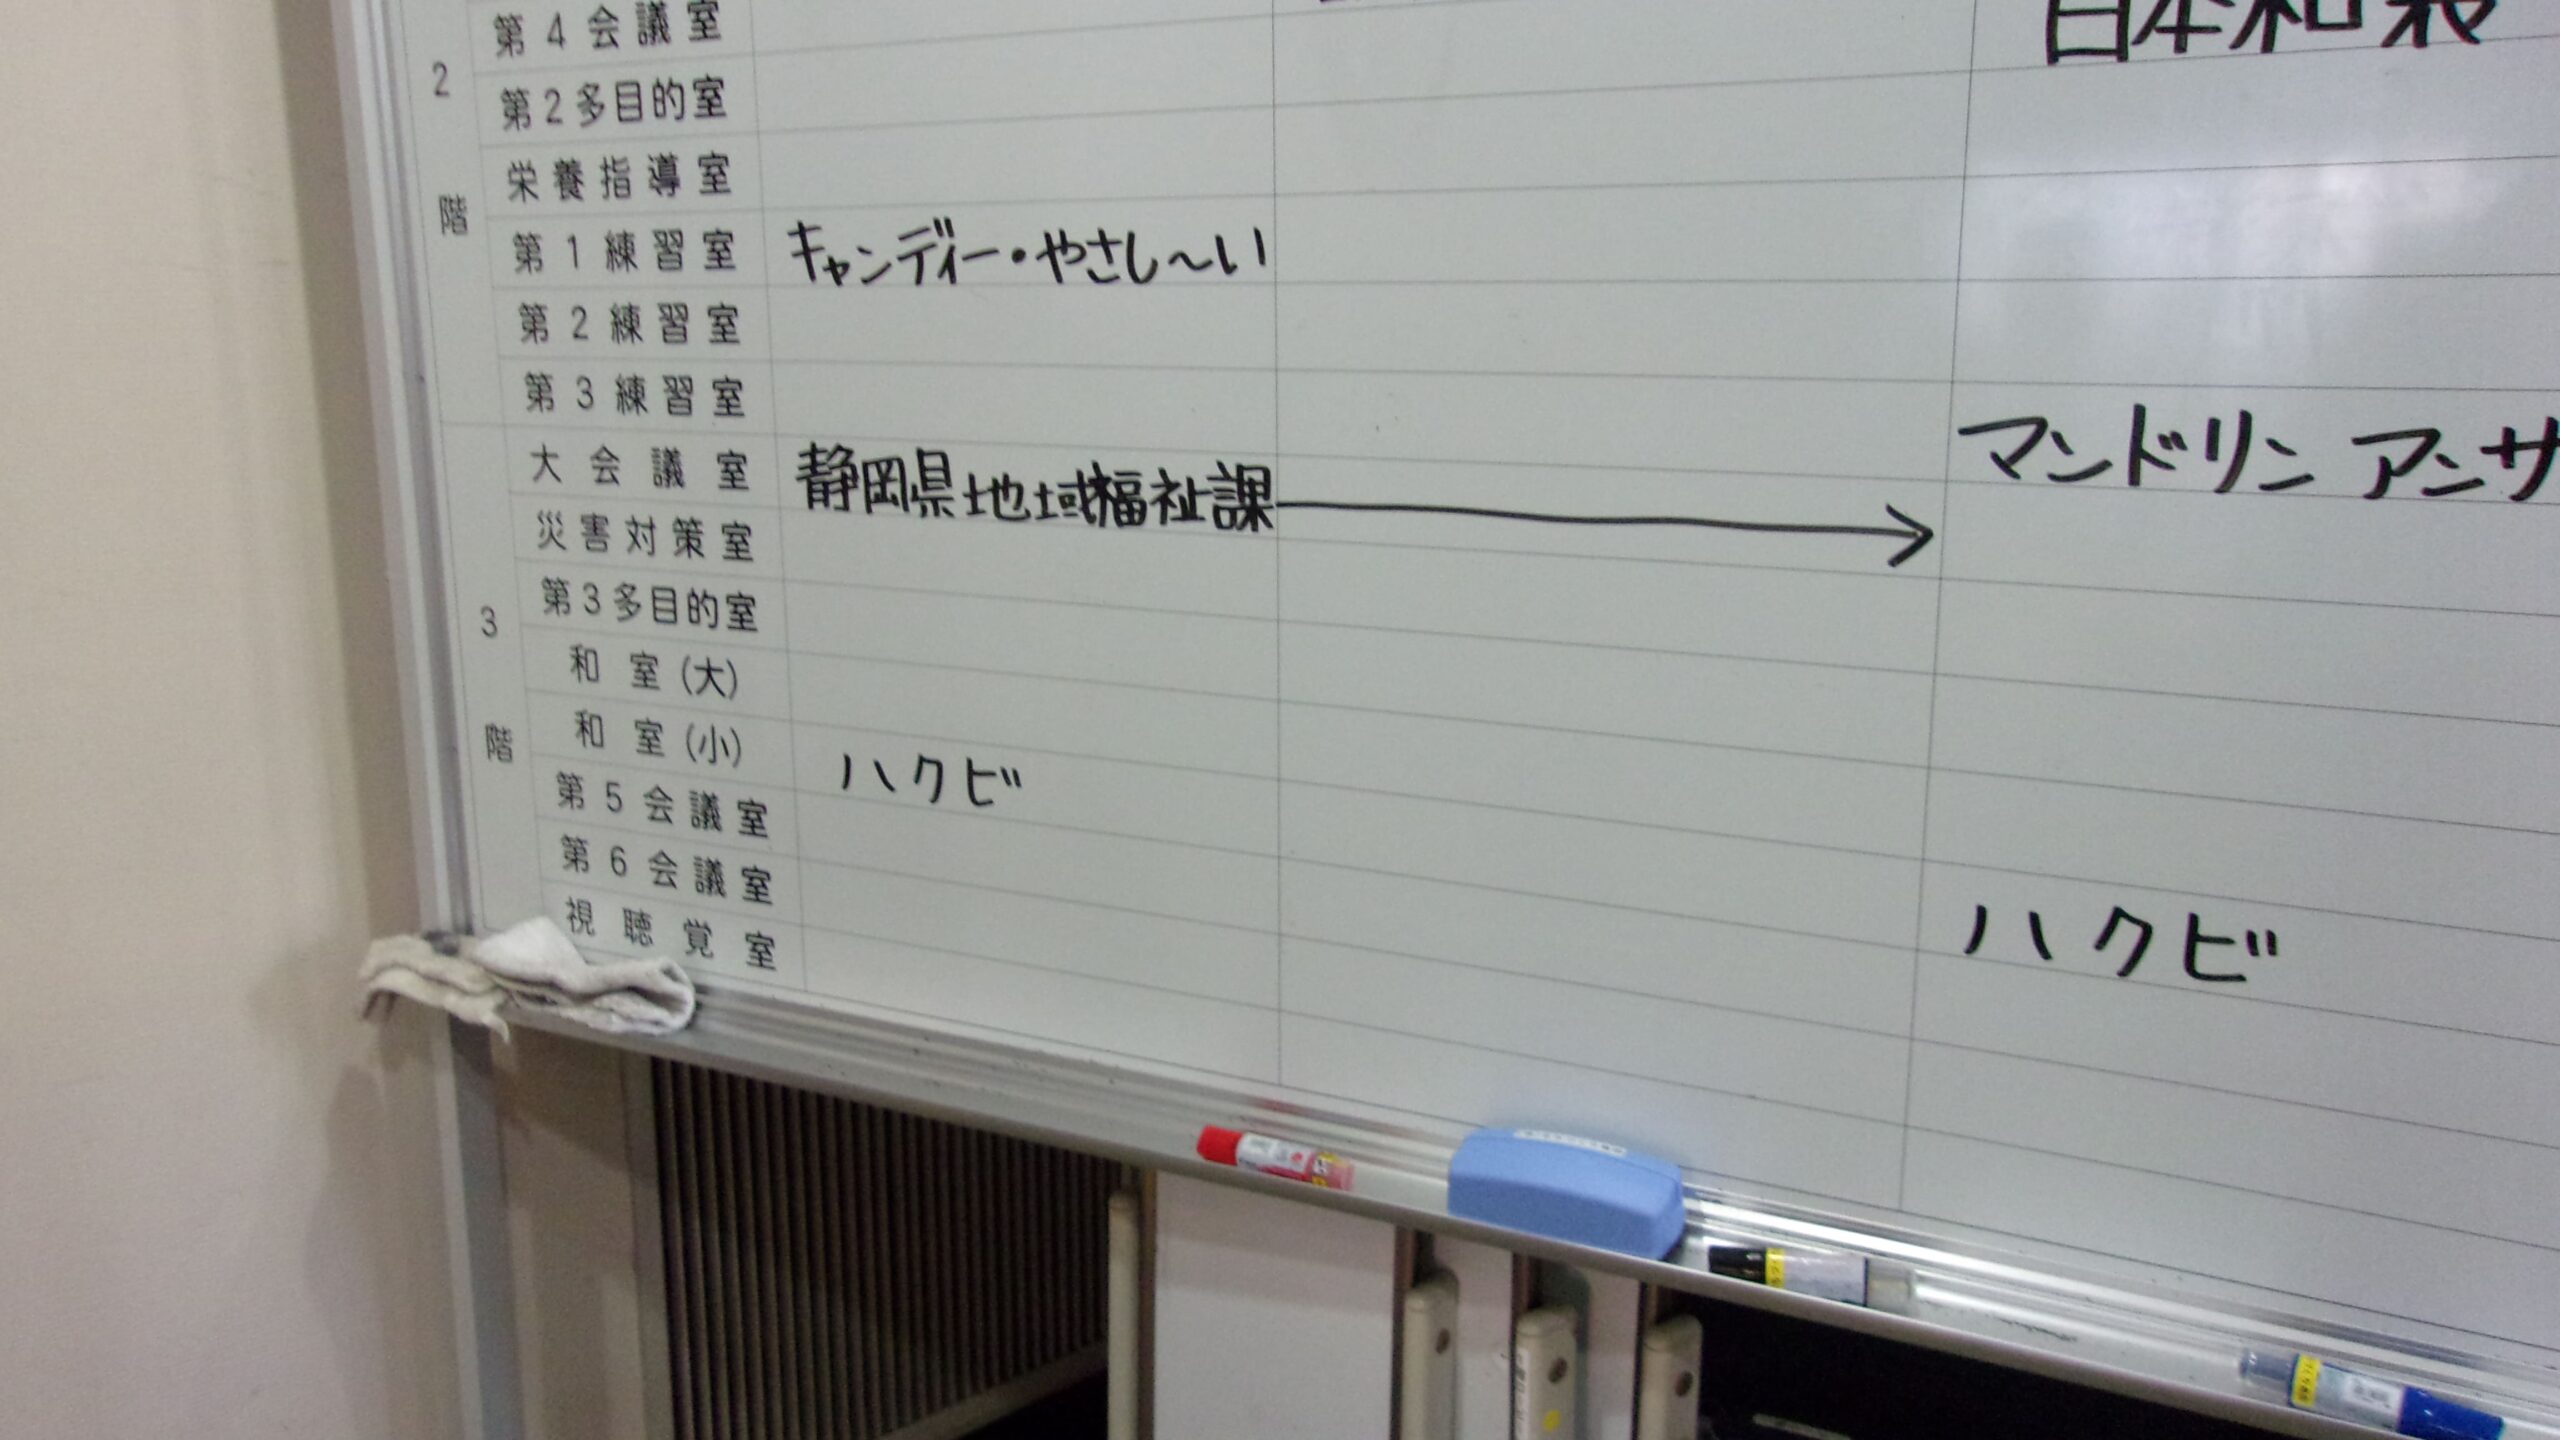 第4会議室
日本和装
2階
第2多目的室
栄養指導室
第1練習室 キャンディー・やさし〜い
第2練習室
第3練習室
大会議室 静岡県地域福祉課 → マンドリン アンサ
災害対策室
3階
第3多目的室
和室(大)
和室(小) ハクビ
第5会議室
第6会議室 ハクビ
視聴覚室